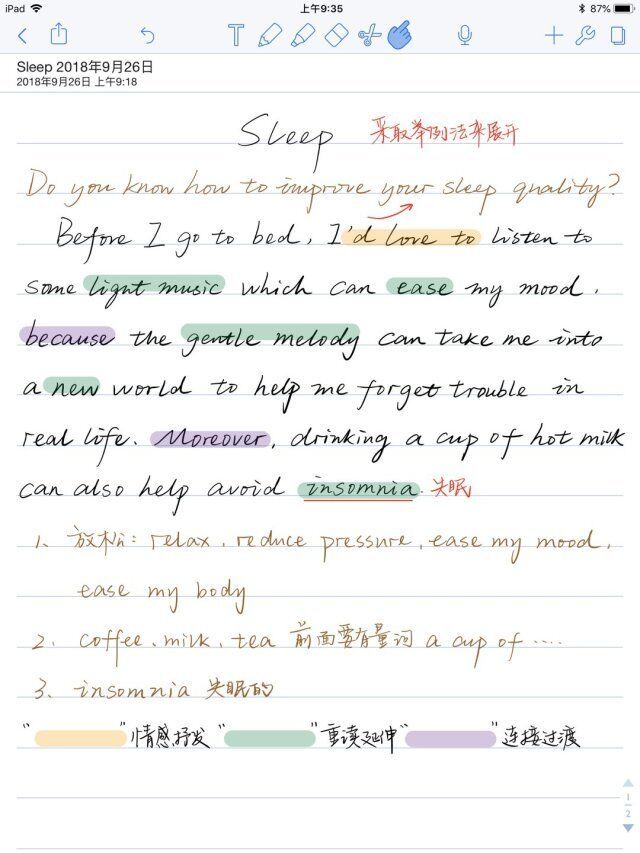 iPad 上午9:35 87%
T
Sleep 2018年9月26日
2018年9月26日 上午9:18
Sleep 采取举例法来展开
Do you know how to improve your sleep quality?
Before I go to bed, I'd love to listen to
some light music which can ease my mood,
because the gentle melody can take me into
a new world to help me forget trouble in
real life. Moreover, drinking a cup of hot milk
can also help avoid insomnia. 失眠
1、放松: relax, reduce pressure, ease my mood,
ease my body
2、coffee、milk、tea 前面要有量词 a cup of ....
3、insomnia 失眠的
“ ”情感抒发 “ ”重读延伸 “ ”连接过渡
1
2